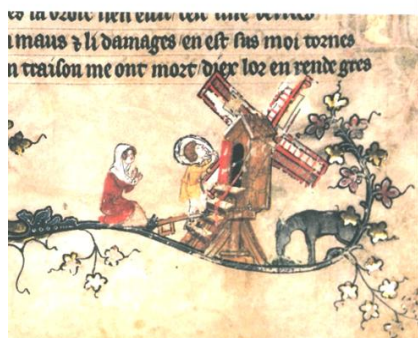 la droite
n maus ⁊ li damages / en est sus moi tornes
n traison me ont mort / diex lor en rende gres